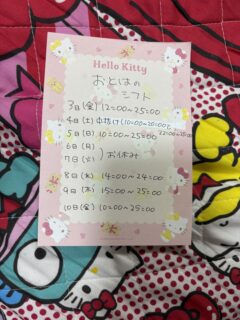 Hello Kitty
おとはの
シフト
3日(金)12:00〜25:00
4日(土)中抜け(10:00〜20:00
22:00〜25:00
5日(日)10:00〜25:00
6日(月)
7日(火) ) お休み
8日(水) 14:00〜24:00
9日(木) 15:00〜25:00
10日(金) 10:00〜25:00